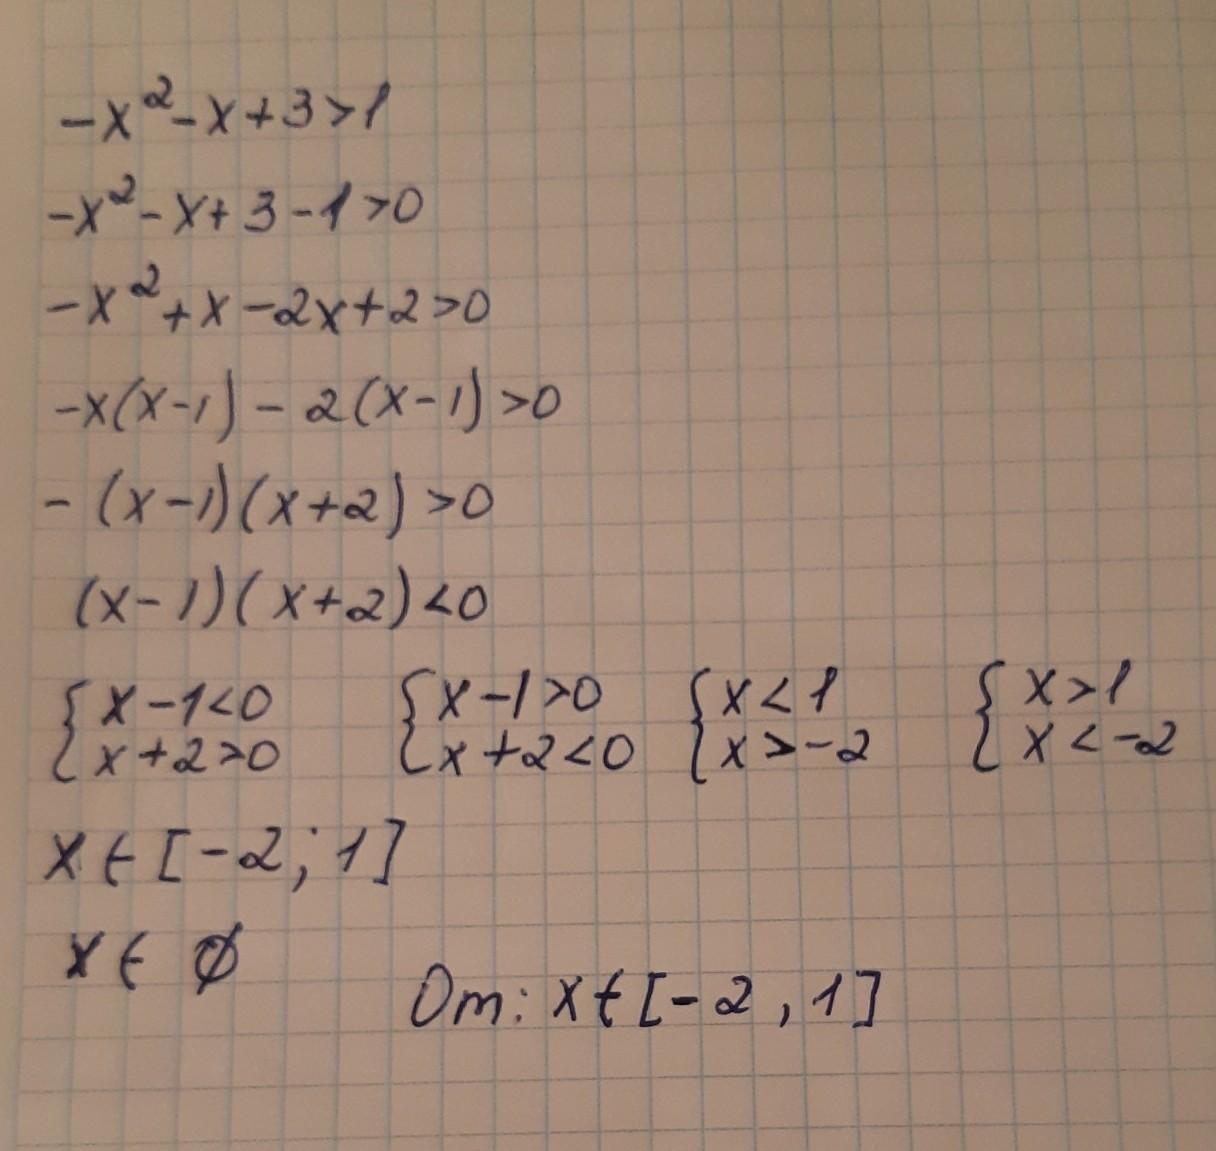 -x²-x+3>1
-x²-x+3-1>0
-x²+x-2x+2>0
-x(x-1)-2(x-1)>0
-(x-1)(x+2)>0
(x-1)(x+2)<0
{x-1<0 {x-1>0 {x<1 {x>1
x+2>0 x+2<0 x>-2 x<-2
x∈[-2;1]
x∈ ∅
От: x∈[-2,1]